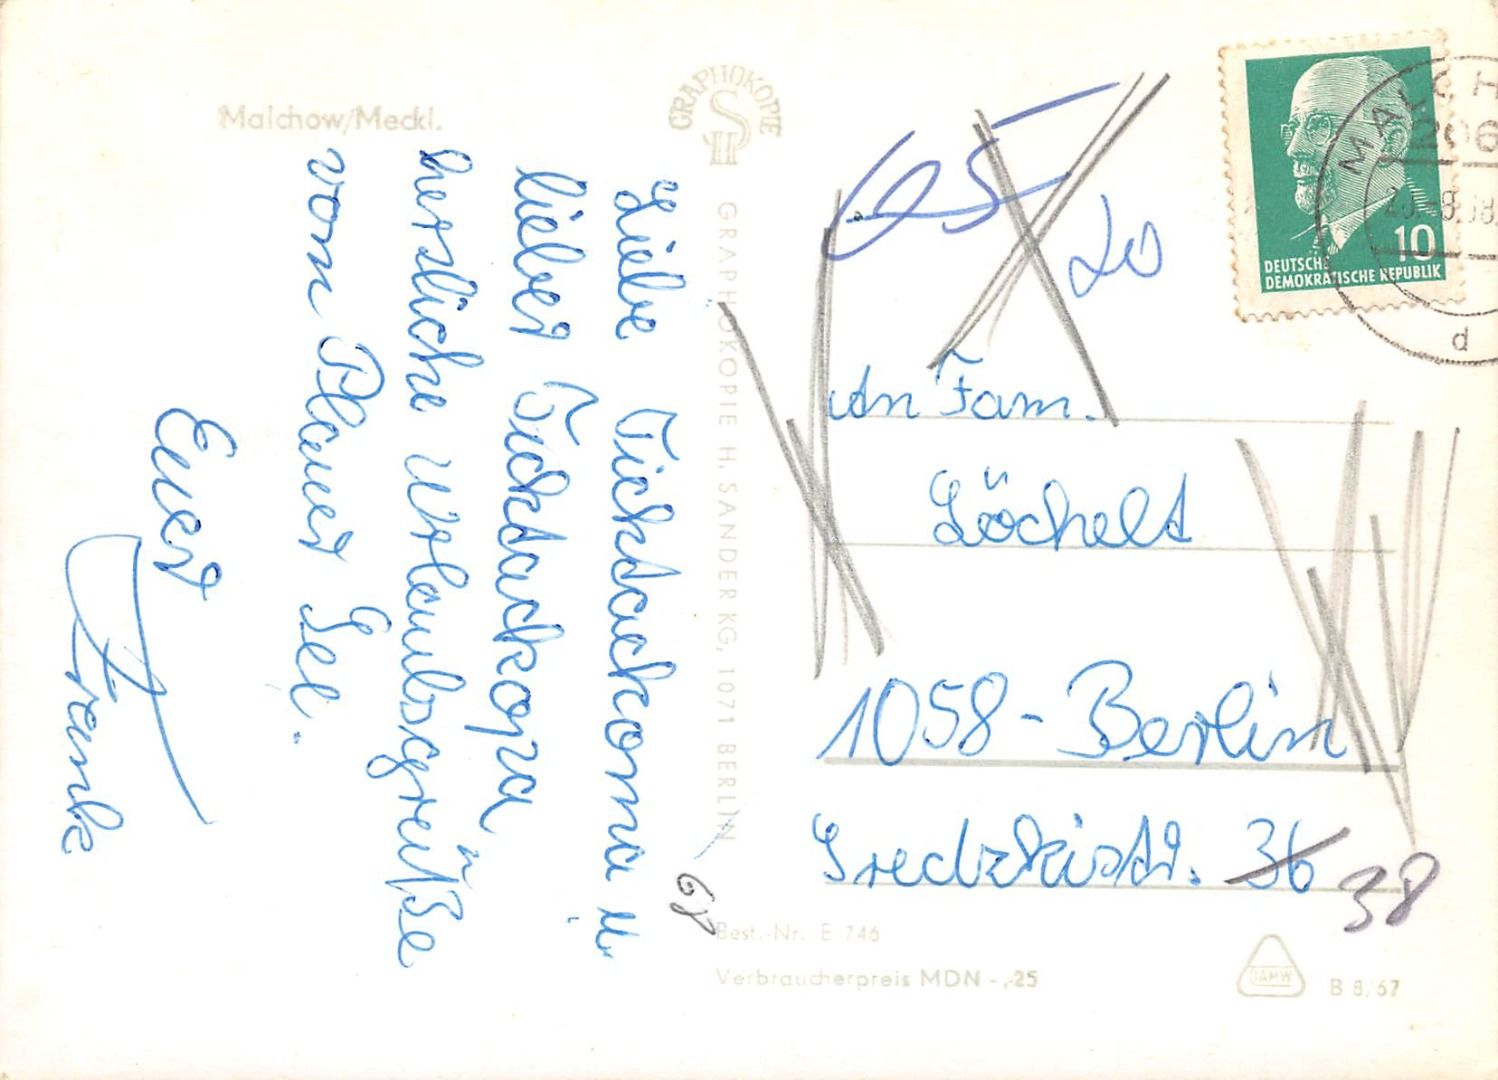 Malchow/Meckl.
Liebe Ticktackoma u.
lieber Ticktackopa
herzliche Urlaubsgrüße
vom Plauer See.
Euer
Frank
GRAPHOKOPIE
H S
GRAPHOKOPIE H. SANDER KG, 1071 BERLIN
68
65
20
DEUTSCHE
DEMOKRATISCHE REPUBLIK
10
MALCH
206
d
An Fam.
Löchelt
1058 - Berlin
Sredzkistr. 36 38
Best.-Nr. E 746
Verbraucherpreis MDN -,25
DAMW
B 8/67